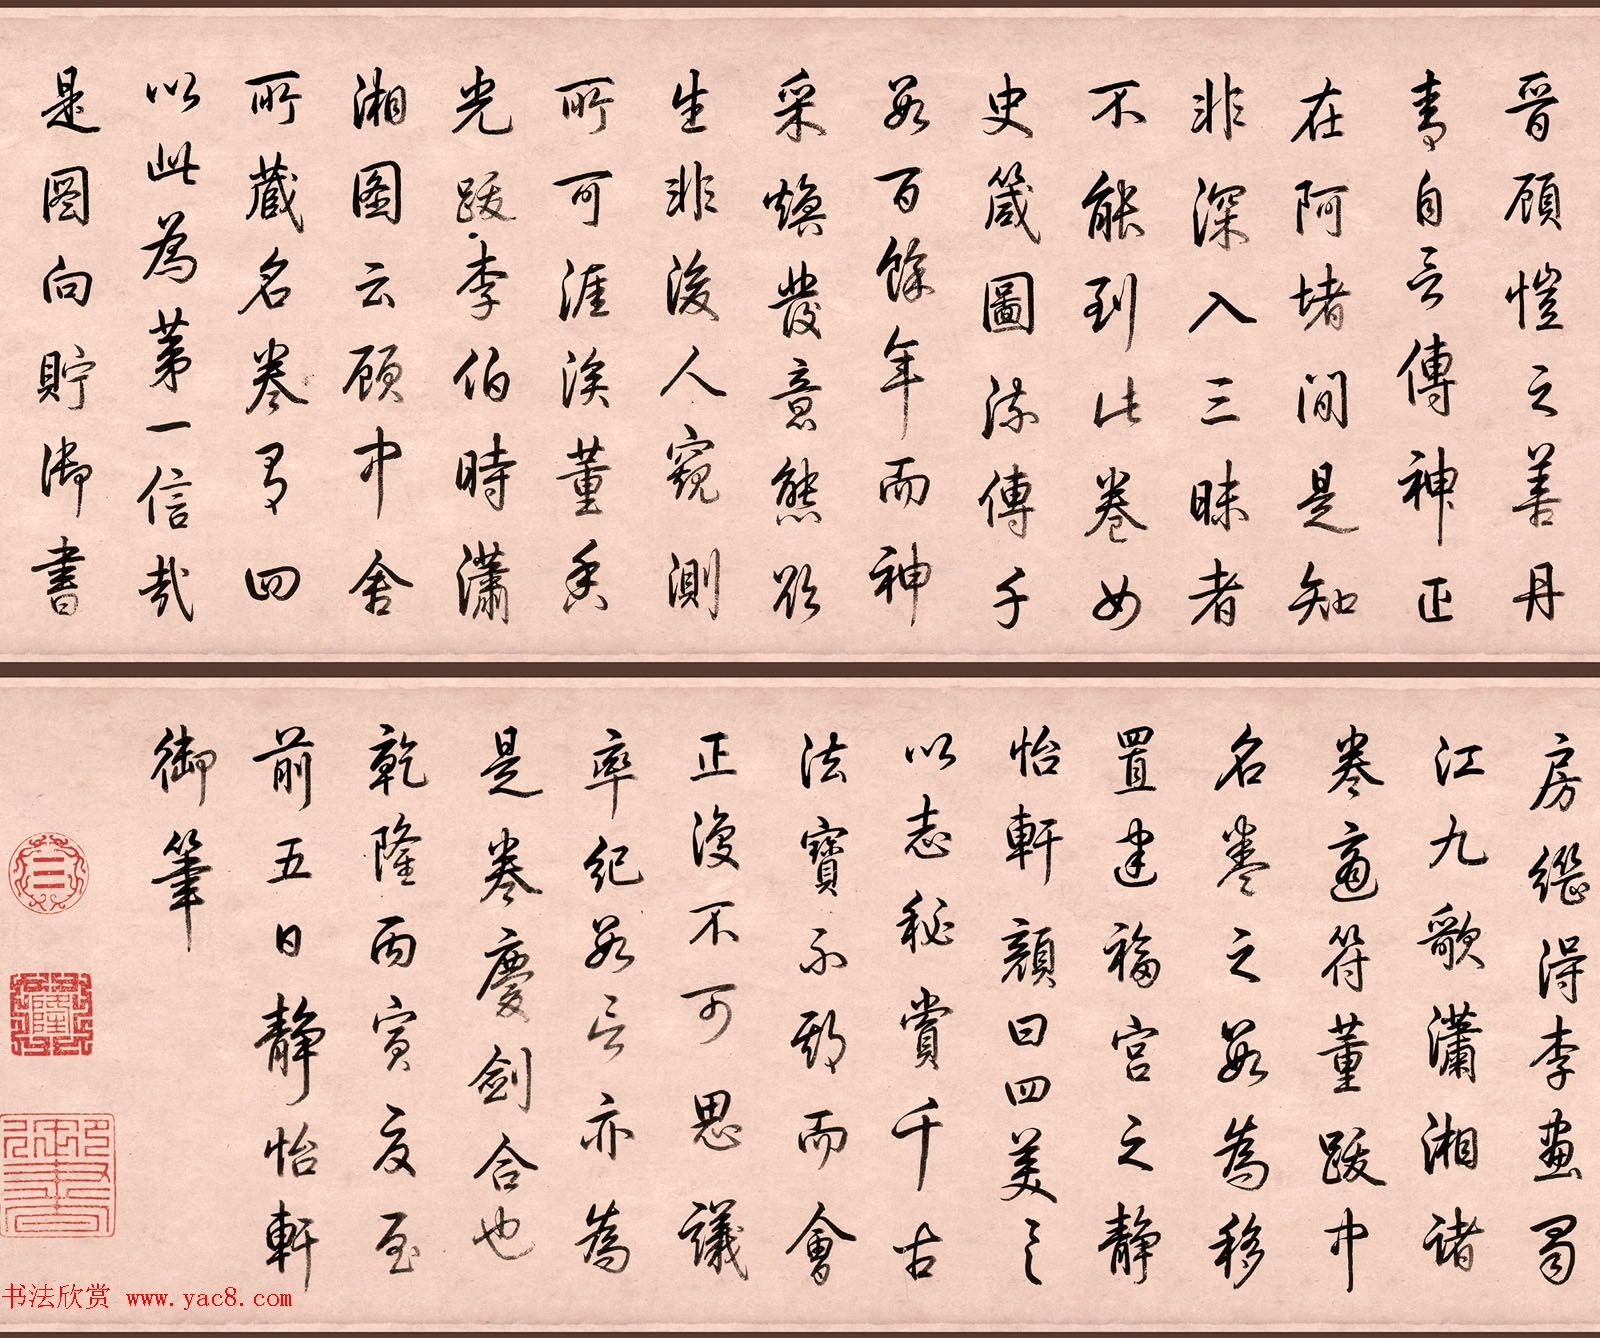 晉顧愷之善丹
青自言傳神正
在阿堵間是知
非深入三昧者
不能到此卷女
史箴圖流傳千
數百餘年而神
采煥發意態欲
生非後人窺測
所可涯涘董香
光跋李伯時瀟
湘圖云顧中舍
所藏名卷有四
以此為第一信哉
是圖向貯御書
房繼得李畫蜀
江九歌瀟湘諸
卷適符董跋中
名卷之數為移
置建福宮之靜
怡軒顏曰四美具
以志秘賞千古
法寶不期而會
正復不可思議
率紀數言亦為
是卷慶劍合也
乾隆丙寅夏至
前五日靜怡軒
御筆
三
乾隆
書法欣赏 www.yac8.com